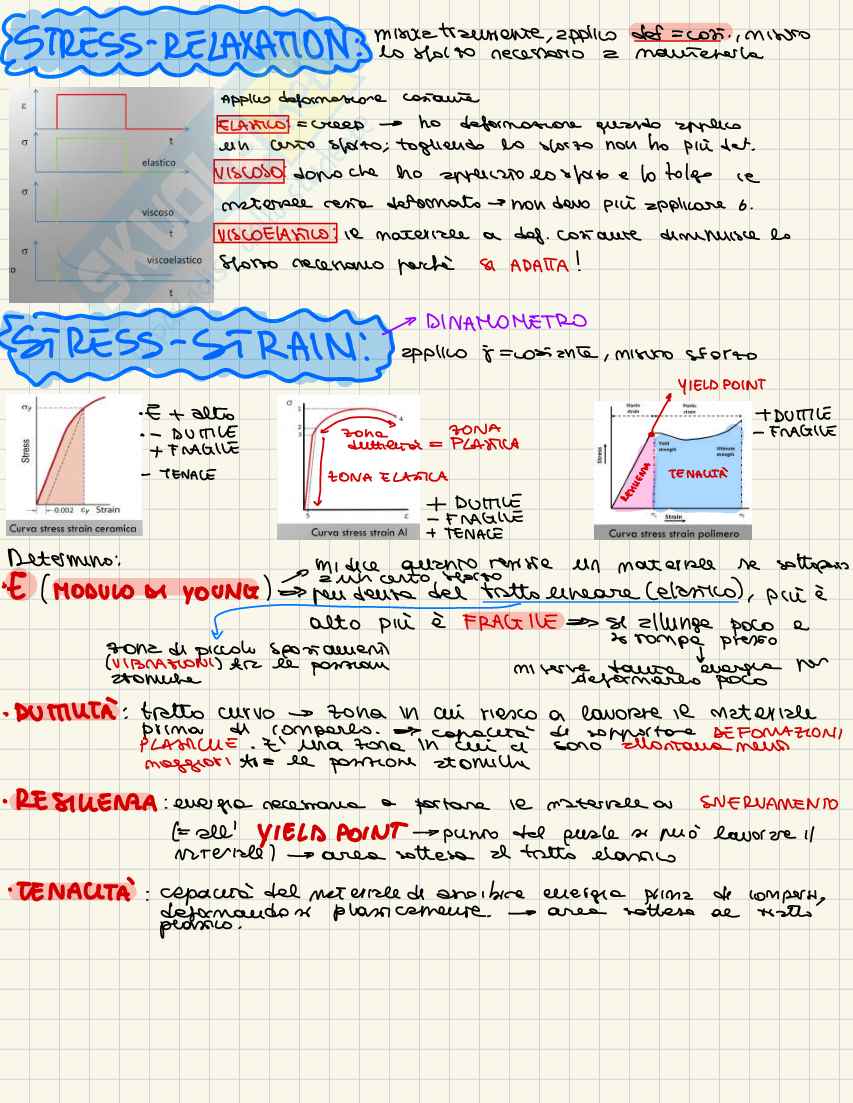 STRESS-RELAXATION: misura transiente, applico def = cost., misuro
lo sforzo necessario a mantenerla
Applico deformazione costante
ELASTICO = creep → ho deformazione quando applico
un certo sforzo; togliendo lo sforzo non ho più def.
VISCOSO: dopo che ho applicato lo sforzo e lo tolgo il
materiale resta deformato → non devo più applicare б.
VISCOELASTICO: il materiale a def. costante diminuisce lo
sforzo necessario perché SI ADATTA!
ε
t
σ
elastico
t
σ
viscoso
t
σ
viscoelastico
t
STRESS-STRAIN:
→ DINAMOMETRO
applico γ̇ = costante, misuro sforzo
σy
Stress
0.002 εy Strain
Curva stress strain ceramica
• E + alto
- DUTTILE
+ FRAGILE
- TENACE
σ
1
2
3
4
5
ε
ZONA duttilità = ZONA PLASTICA
ZONA ELASTICA
Curva stress strain Al
+ DUTTILE
- FRAGILE
+ TENACE
YIELD POINT
Elastic strain
Plastic strain
Stress
Yield strength
Ultimate strength
RESILIENZA
TENACITÀ
Strain
Curva stress strain polimero
+ DUTTILE
- FRAGILE
Determino:
→ mi dice quanto resiste un materiale se sottoposto
a un certo sforzo
• E (MODULO DI YOUNG) → pendenza del tratto lineare (elastico), più è
alto più è FRAGILE ⇒ si allunga poco e
si rompe presto
zona di piccoli spostamenti
(VIBRAZIONI) tra le posizioni
atomiche
mi serve tanta energia per
deformarlo poco
• DUTTILITÀ: tratto curvo → zona in cui riesco a lavorare il materiale
prima di romperlo. ⇒ capacità di sopportare DEFOMAZIONI
PLASTICHE. È una zona in cui ci sono allontanamenti
maggiori tra le posizioni atomiche
• RESILIENZA: energia necessaria a portare il materiale a SNERVAMENTO
(= all' YIELD POINT → punto dal quale si può lavorare il
materiale) → area sottesa al tratto elastico
• TENACITÀ: capacità del materiale di assorbire energia prima di rompersi,
deformandosi plasticamente. → area sottesa al tratto
plastico.